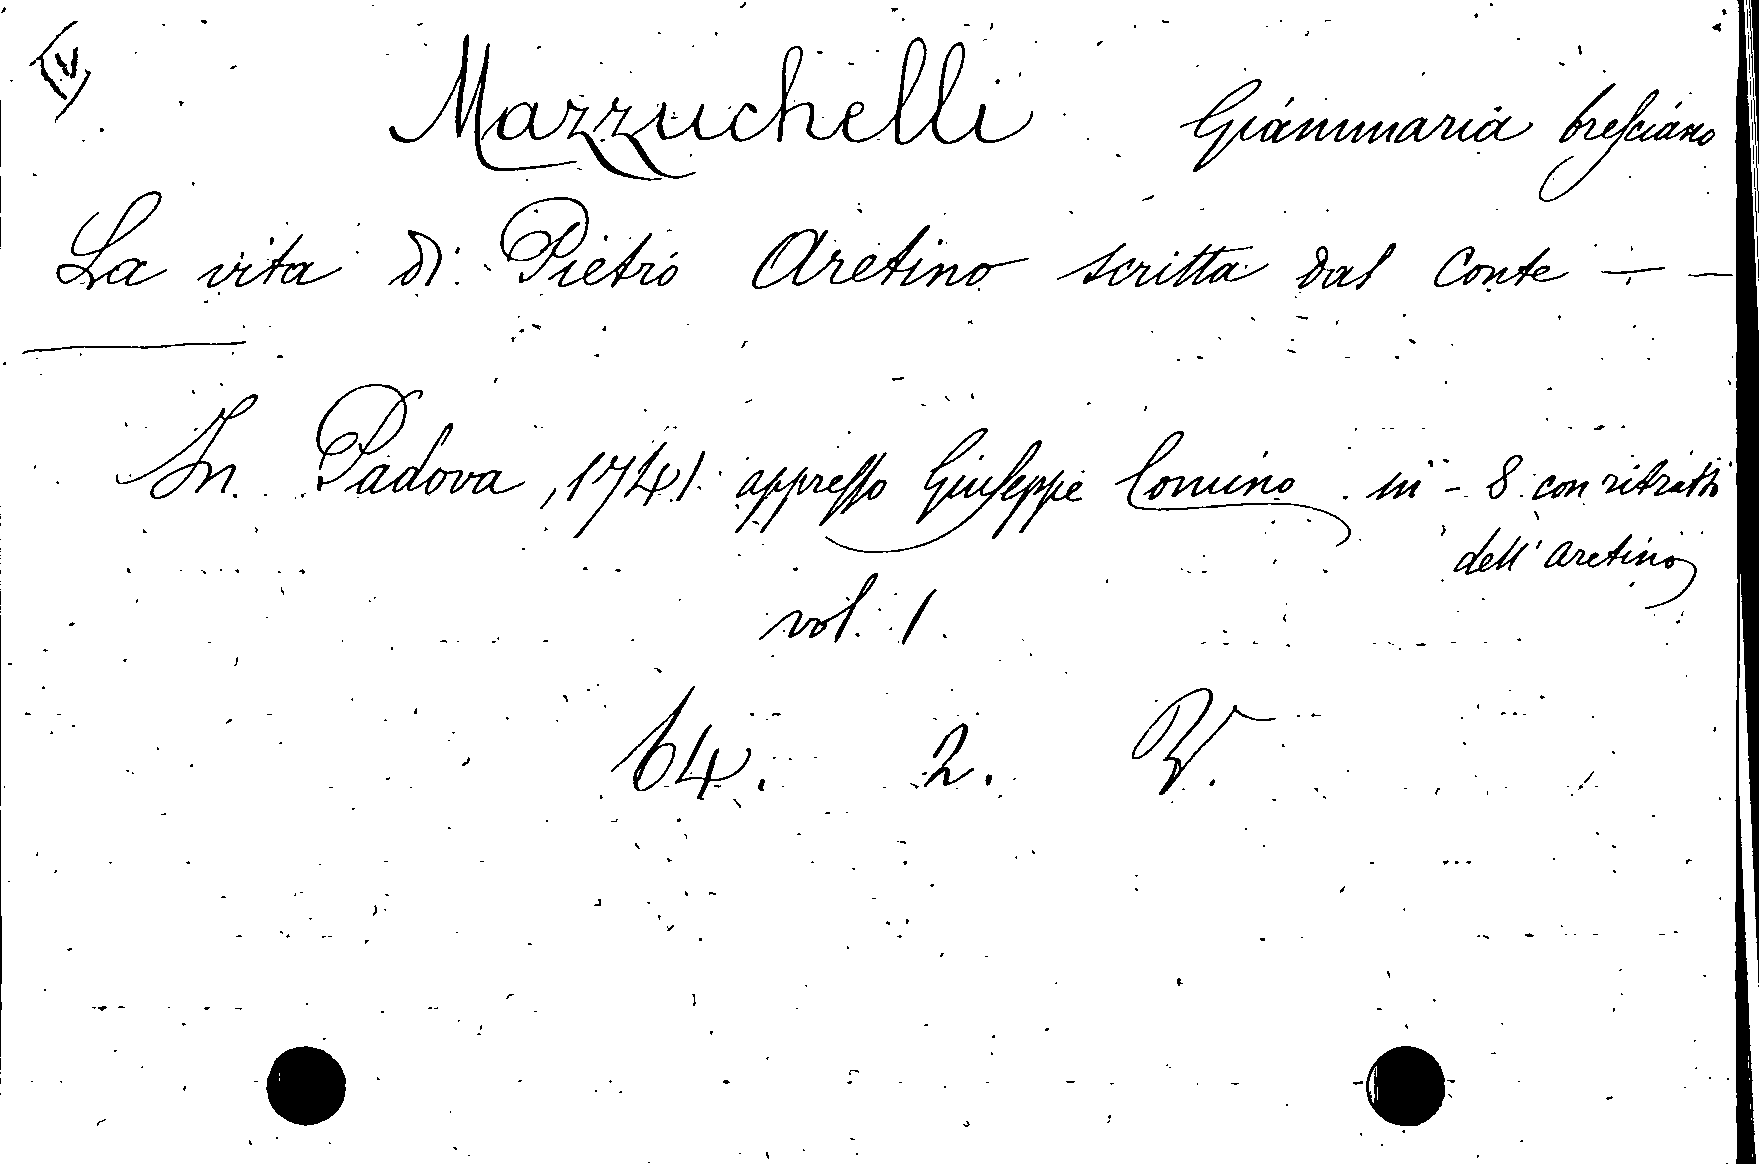 Mazzuchelli Giammaria bresciano
La vita di Pietro Aretino scritta dal Conte — —
In Padova, 1741 appresso Giuseppe Comino in - 8 con ritratti
dell' aretino
vol. 1.
64. 2.